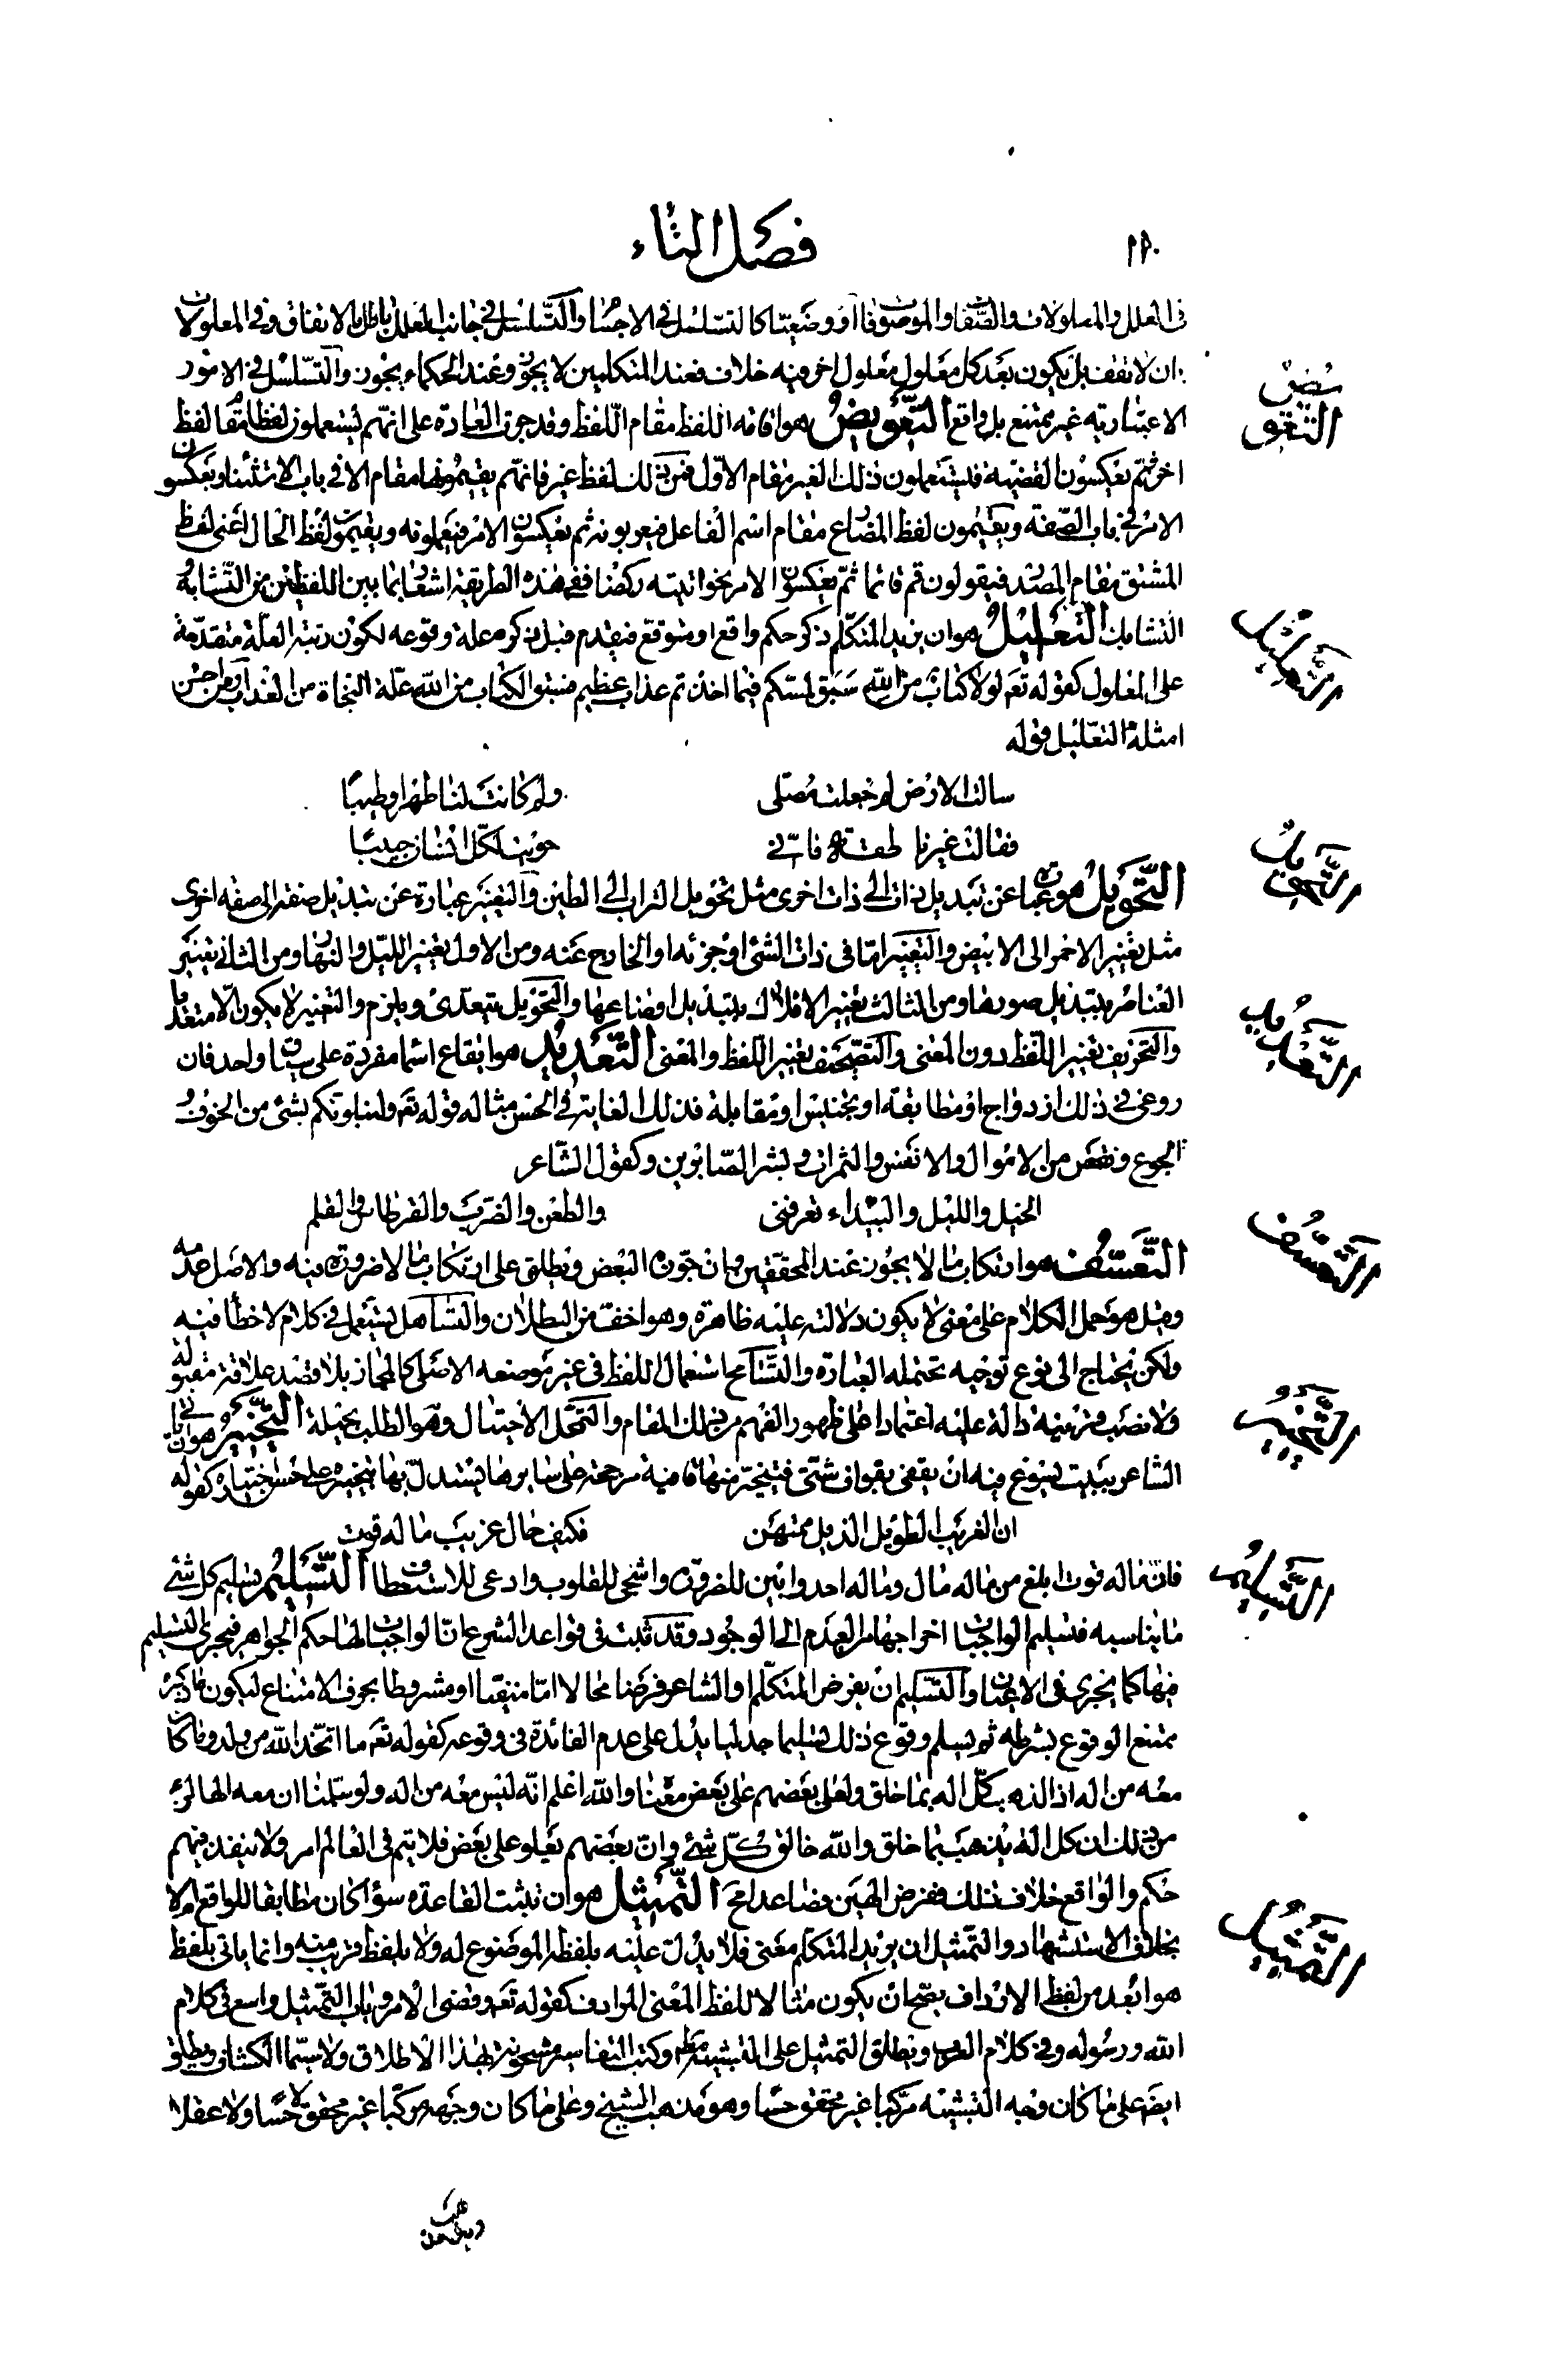 فصل التاء
في العلل والمعلولات والصفات والموصوفات أو وضعيتا كالتسلسل في الاجسام والتسلسل في جانب العلل باطل بالاتفاق وفي المعلولات
ان لا تقف بل يكون بعد كل معلول معلول اخر فيه خلاف فعند المتكلمين لا يجوز وعند الحكماء يجوز والتسلسل في الامور
الاعتبارية غير ممتنع بل واقع التعويض هو اقامة اللفظ مقام اللفظ وقد جرت العادة على انهم يستعملون لفظا مقام لفظ
اخر ثم يعكسون القضية فليستعملون ذلك الغير مقام الاول فمن ذلك لفظ غير فانهم يقيمونها مقام الا في باب الاستثناء ويعكسون
الامر في باب الصفة ويقيمون لفظ المضارع مقام اسم الفاعل فيعربونه ثم يعكسون الامر فيعملونه ويقيمون لفظ الحال اعني لفظ
المشتق مقام المصدر فيقولون قم قائما ثم يعكسون الامر نحو اتيته ركضا ففي هذه الطريقة اشعار بما بين اللفظين من التشابه
التشابك التعليل هو ان يريد المتكلم ذكر حكم واقع او متوقع فيقدم قبل ذكره علة وقوعه لكون رتبة العلة متقدمة
على المعلول كقوله تع لولا كتاب من الله سبق لمسكم فيما اخذتم عذاب عظيم فسبق الكتاب من الله علة النجاة من العذاب ومن احسن
امثلة التعليل قوله
سالت الارض لم جعلت مصلى ولم كانت لنا طهرا وطيبا
فقالت غير ناطقة فاني حويت لكل انسان حبيبا
التحويل هو عبارة عن تبديل ذات الى ذات اخرى مثل تحويل التراب الى الطين والتغيير عبارة عن تبديل صفة الى صفة اخرى
مثل تغيير الاحمر الى الابيض والتغيير اما في ذات الشئ او جزئه او الخارج عنه ومن الاول تغيير الليل والنهار ومن الثاني تغيير
العناصر بتبديل صورها ومن الثالث تغيير الافلاك بتبديل اوضاعها والتحويل يتعدى ويلزم والتغيير لا يكون الا متعديا
والتحريف تغيير اللفظ دون المعنى والتصحيف تغيير اللفظ والمعنى التعديد هو ايقاع اسما مفردة على سياق واحد فان
روعي في ذلك ازدواج او مطابقة او تجنيس او مقابلة فذلك الغاية في الحسن مثاله قوله تع ولنبلونكم بشئ من الخوف و
الجوع ونقص من الاموال والانفس والثمرات وبشر الصابرين وكقول الشاعر
الخيل والليل والبيداء تعرفني والطعن والضرب والقرطاس والقلم
التعسف هو ارتكاب ما لا يجوز عند المحققين وان جوزه البعض ويطلق على ارتكاب ما لا ضرورة فيه والاصل عدمه
وقيل هو حمل الكلام على معنى لا يكون دلالته عليه ظاهرة وهو اخف من البطلان والتساهل يستعمل في كلام لا خطأ فيه
ولكن يحتاج الى نوع توجيه تحتمله العبارة والتسامح استعمال اللفظ في غير موضعه الاصلي كالمجاز بلا قصد علاقة مقبولة
ولا نصب قرينة دالة عليه اعتمادا على ظهور الفهم من ذلك المقام والتمحل الاحتيال وهو الطلب بحيلة التخيير هو ان ياتي
الشاعر ببيت يسوغ فيه ان يقفى بقواف شتى فيتخير منها قافية مرجحة على سايرها يستدل بها بتخيره على حسن اختياره كقوله
ان الغريب الطويل الذيل ممتهن فكيف حال غريب ما له قوت
فان ما له قوت ابلغ من ما له مال وما له احد وابين للضرورة واشجى للقلوب وادعى للاستعطاف التسليم تسليم كل شئ
ما يناسبه فتسليم الواجبات اخراجها من العدم الى الوجود وقد ثبت في قواعد الشرع ان الواجبات لها حكم الجواهر فيجري التسليم
فيها كما يجري في الاعيان والتسليم ان يفرض المتكلم او الشاعر فرضا محالا اما منفيا او مشروطا بحرف الامتناع ليكون ما ذكره
ممتنع الوقوع بشرطه ثم يسلم وقوع ذلك تسليما جدليا يدل على عدم الفائدة في وقوعه كقوله تع ما اتخذ الله من ولد وما كان
معه من اله اذا لذهب كل اله بما خلق ولعلى بعضهم على بعض معناه والله اعلم انه ليس معه من اله ولو سلمنا ان معه الها لزم
من ذلك ان كل اله يذهب بما خلق والله خالق كل شئ وان بعضهم يعلو على بعض فلا يتم في العالم امر ولا ينفذ فيهم
حكم والواقع خلاف ذلك ففرض الهين فصاعدا مح التمثيل هو ان تثبت القاعدة سواء كان مطابقا للواقع ام لا
بخلاف الاستشهاد والتمثيل ان يريد المتكلم معنى فلا يدل عليه بلفظه الموضوع له ولا بلفظ قريب منه وانما ياتي بلفظ
هو ابعد من لفظ الارداف يصح ان يكون مثالا للفظ المعنى المرادف كقوله تع وقضي الامر وباب التمثيل واسع في كلام
الله ورسوله وفي كلام العرب ويطلق التمثيل على التشبيه مطلقا وكتب التفاسير مشحونة بهذا الاطلاق ولا سيما الكشاف ويطلق
ايضا على ما كان وجه التشبيه مركبا غير محقق حسا وهو مذهب الشيخ وعلى ما كان وجهه مركبا غير محقق لا حسا ولا عقلا
التعويض
التعليل
التحويل
التعديد
التعسف
التخيير
التسليم
التمثيل